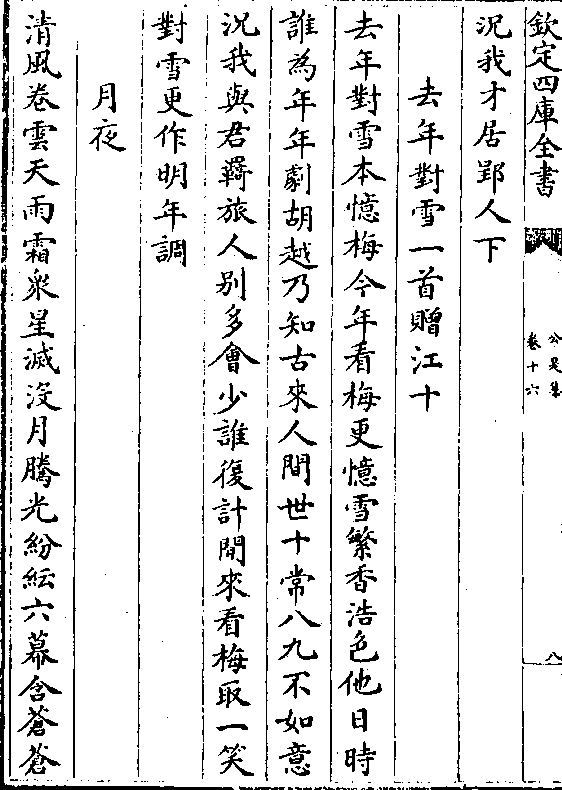 欽定四庫全書
公是集
卷十六
八
況我才居郢人下
去年對雪一首贈江十
去年對雪本憶梅今年看梅更憶雪繁香浩色他日時
誰為年年劇胡越乃知古來人間世十常八九不如意
況我與君羇旅人別多會少誰復計閒來看梅取一笑
對雪更作明年調
月夜
清風卷雲天雨霜衆星滅沒月騰光紛紜六幕含蒼蒼